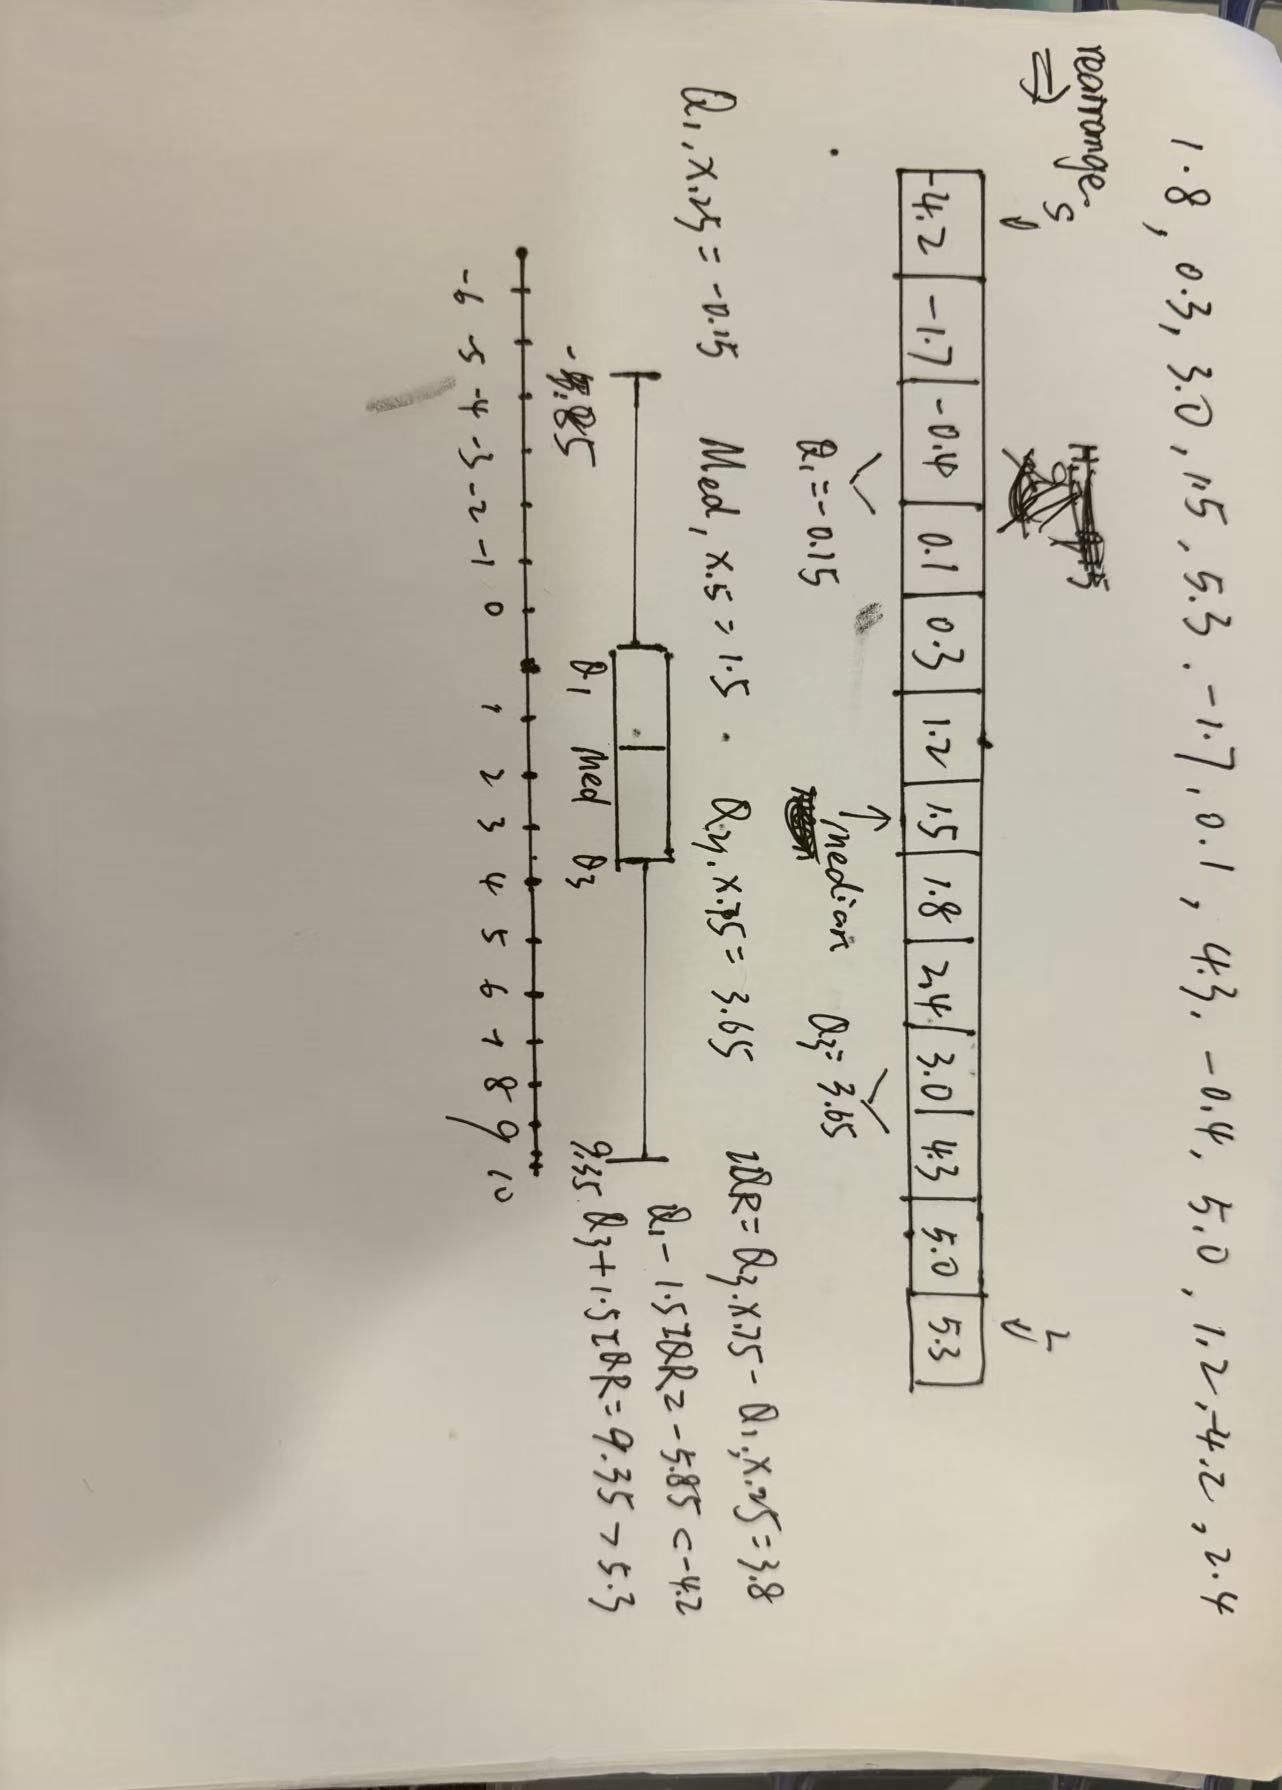 1.8, 0.3, 3.0, 1.5, 5.3, -1.7, 0.1, 4.3, -0.4, 5.0, 1.2, -4.2, 2.4
rearrange
⇒
-4.2 | -1.7 | -0.4 | 0.1 | 0.3 | 1.2 | 1.5 | 1.8 | 2.4 | 3.0 | 4.3 | 5.0 | 5.3
Q1 = -0.15 median Q3 = 3.65
Q1, x.25 = -0.15 Med, x.5 = 1.5 . Q3, x.75 = 3.65 IQR = Q3, x.75 - Q1, x.25 = 3.8
Q1 - 1.5IQR = -5.85 < -4.2
-5.85 Q1 Med Q3 9.35 Q3 + 1.5IQR = 9.35 > 5.3
-6 -5 -4 -3 -2 -1 0 1 2 3 4 5 6 7 8 9 10